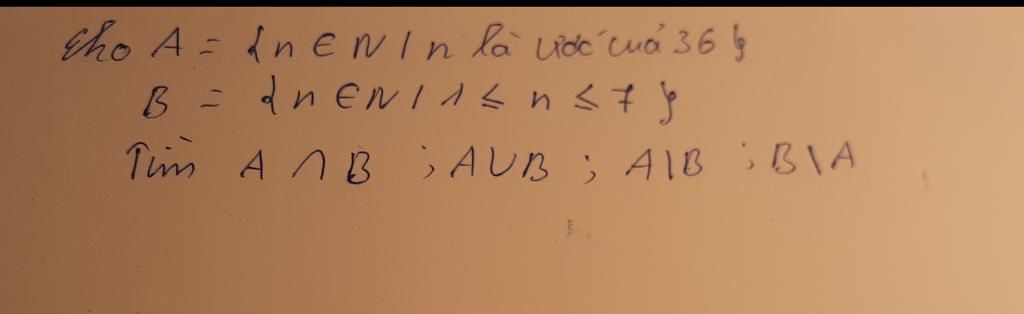 Cho A = {n ∈ N | n là ước của 36}
B = {n ∈ N | 1 ≤ n ≤ 7}
Tìm A ∩ B ; A ∪ B ; A \ B ; B \ A